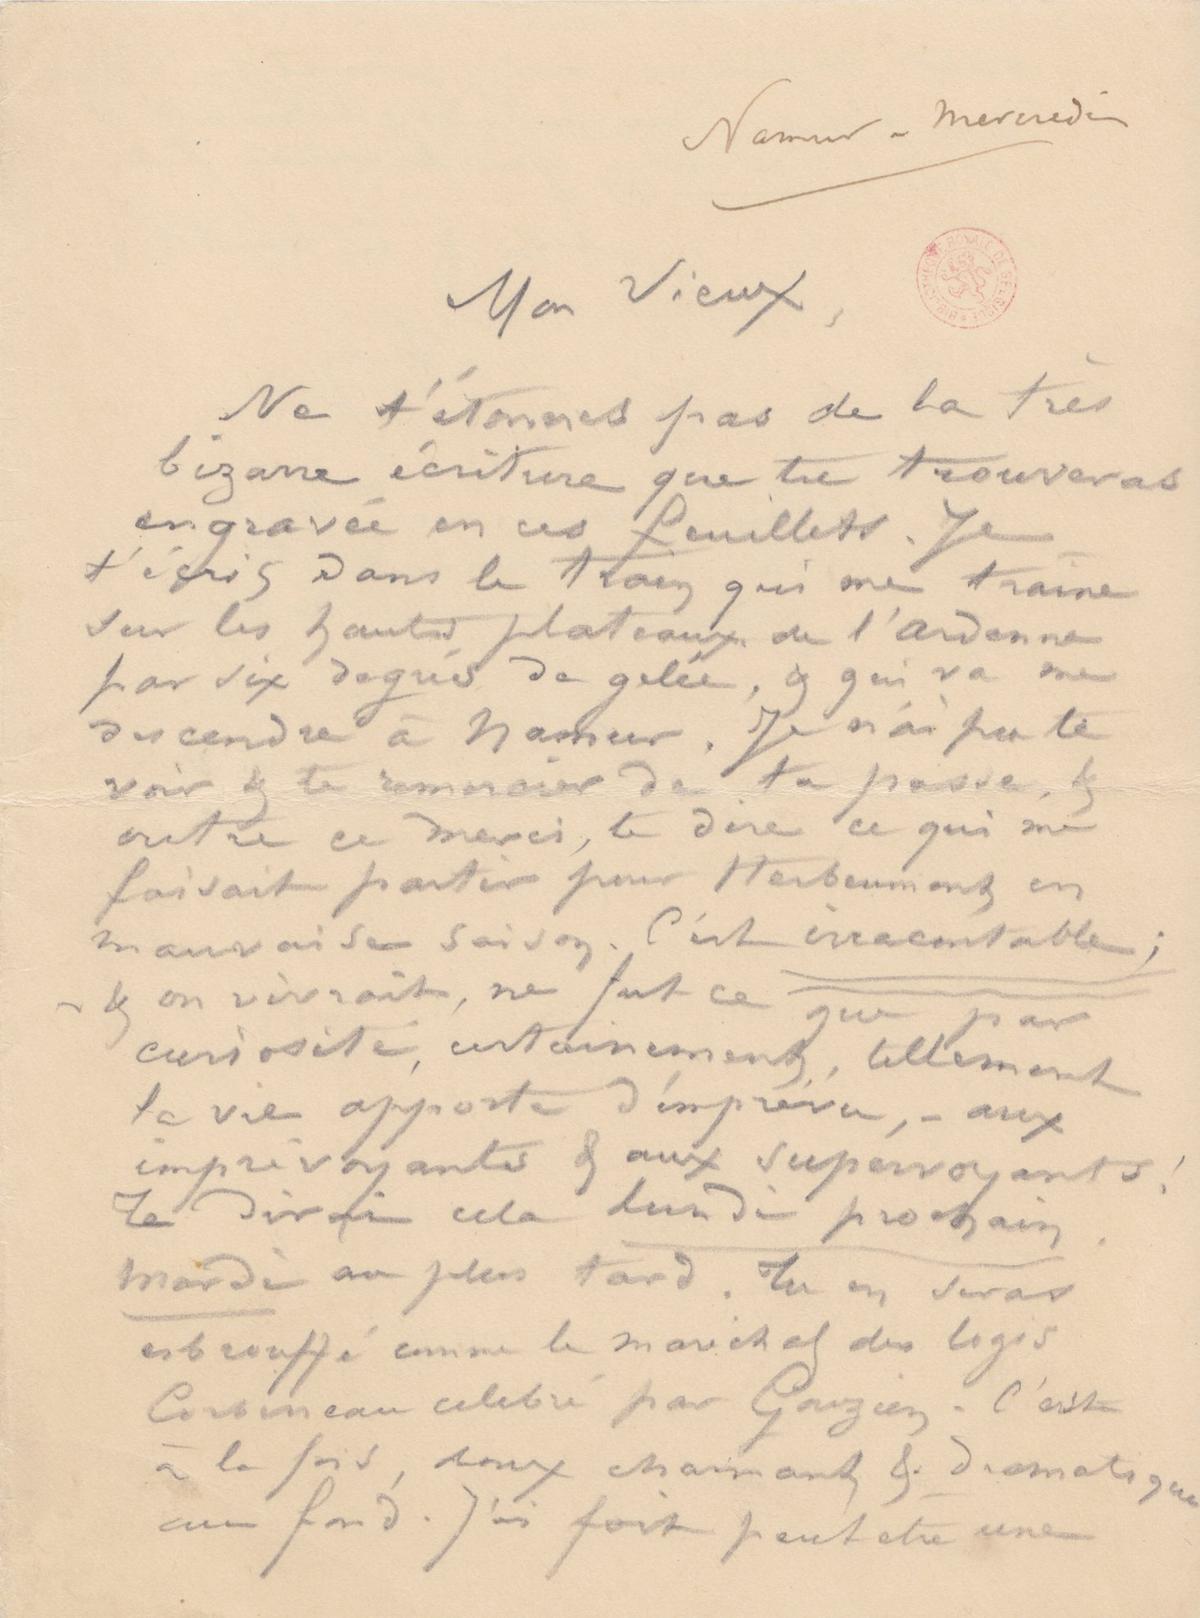 Namur - Mercredi
BIBLIOTHÈQUE ROYALE DE BELGIQUE
Mon Vieux,
Ne t'étonnes pas de la très
bizarre écriture que tu trouveras
engravée en ces feuillets. Je
t'écris dans le train qui me traîne
sur les hauts plateaux de l'Ardenne
par six degrés de gelée, & qui va me
descendre à Namur. Je n'ai pu te
voir & te remercier de ta passe, &
outre ce merci, te dire ce qui me
faisait partir pour Herbeumont en
mauvaise saison. C'est irracontable;
- & on vivrait, ne fut ce que par
curiosité, certainement, tellement
la vie apporte d'imprévu, - aux
imprévoyants & aux supervoyants!
Te dirai cela lundi prochain.
mardi au plus tard. Tu en seras
esbrouffé comme le maréchal des logis
Corbineau celebré par Gouzien. C'est
à la fois, doux charmant & dramatique
au fond. J'ai fait peut etre une